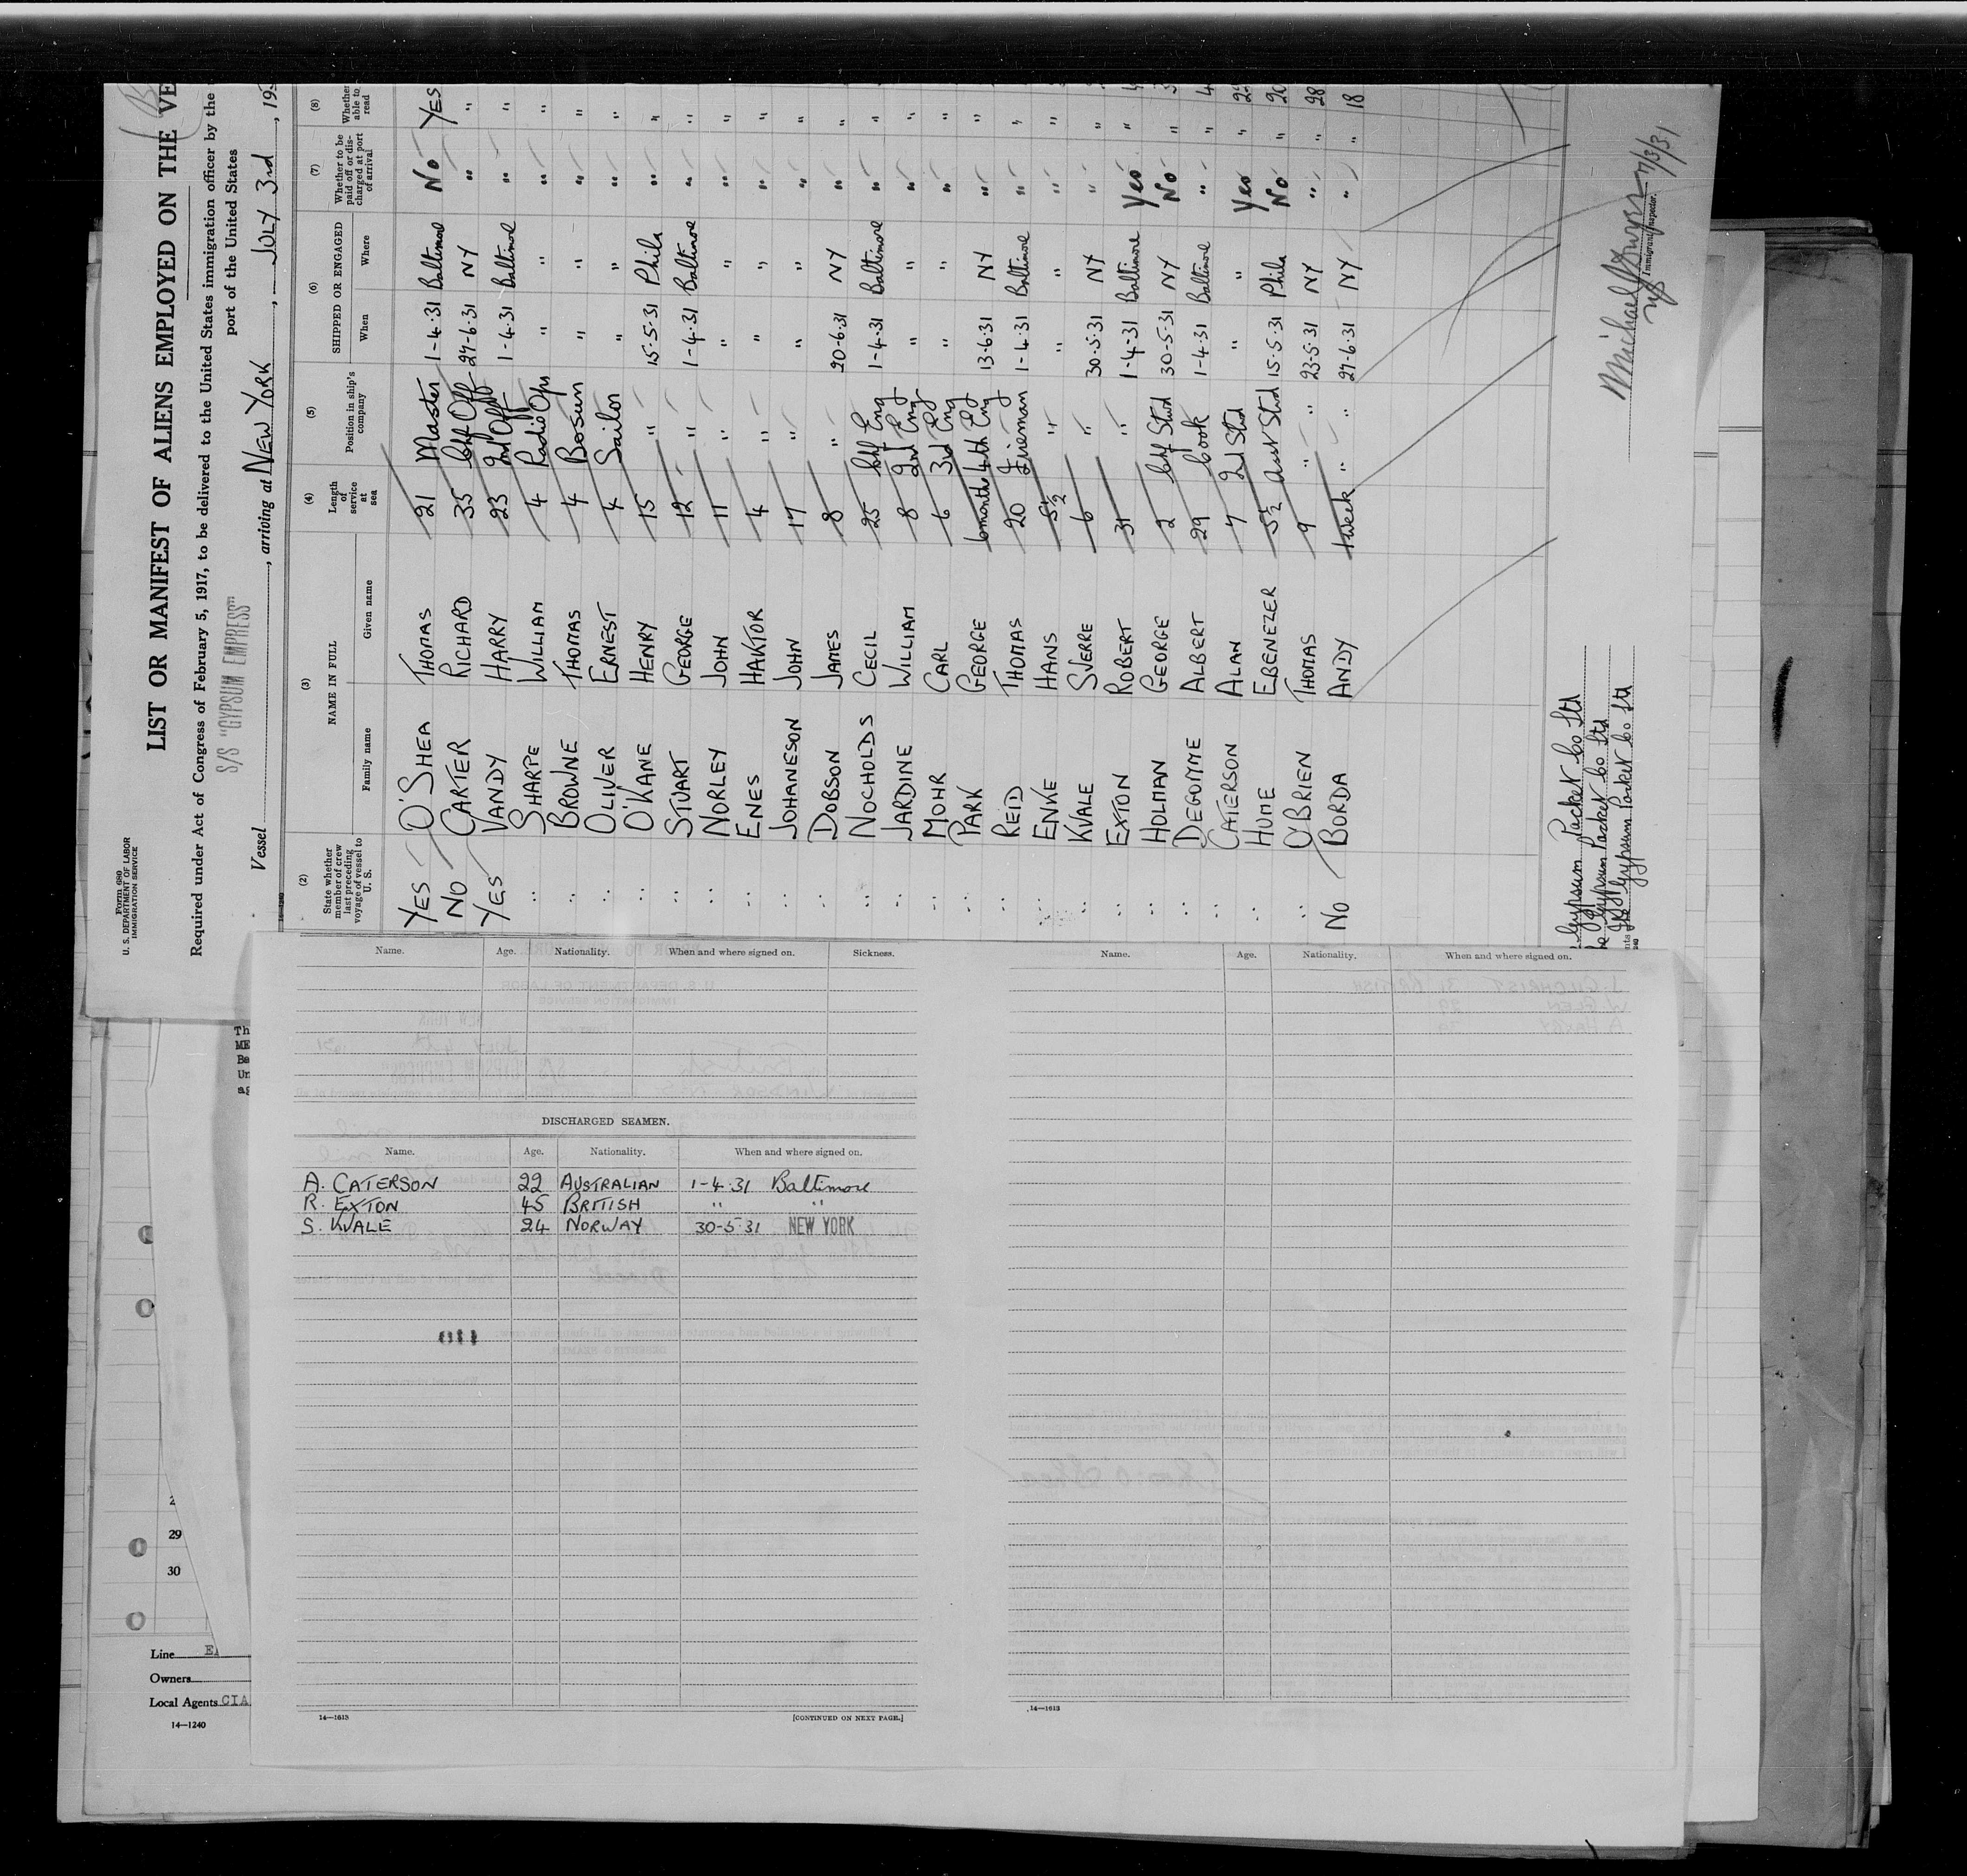 Form 689
U. S. DEPARTMENT OF LABOR
IMMIGRATION SERVICE
LIST OR MANIFEST OF ALIENS EMPLOYED ON THE VE
Required under Act of Congress of February 5, 1917, to be delivered to the United States immigration officer by the
port of the United States
Vessel S/S "GYPSUM EMPRESS", arriving at NEW YORK, JULY 3rd, 193
(2) (3) (4) (5) (6) (7) (8)
State whether member of crew last preceding voyage of vessel to U. S. NAME IN FULL Family name Given name Length of service at sea Position in ship's company SHIPPED OR ENGAGED When Where Whether to be paid off or discharged at port of arrival Whether able to read
YES O'SHEA THOMAS 21 Master 1-4-31 Baltimore No YES
NO CARTER RICHARD 35 Chf Off 27-6-31 NY " "
YES VANDY HARRY 23 2nd Off 1-4-31 Baltimore " "
" SHARPE WILLIAM 4 Radio Opr " " " "
" BROWNE THOMAS 4 Bosun " " " "
" OLIVER ERNEST 4 Sailor " " " "
" O'KANE HENRY 15 " 15-5-31 Phila " "
" STUART GEORGE 12 " 1-4-31 Baltimore " "
" NORLEY JOHN 11 " " " " "
" ENES HAKTOR 4 " " " " "
" JOHANESON JOHN 17 " " " " "
" DOBSON JAMES 8 " 20-6-31 NY " "
" NOCHOLDS CECIL 25 Chf Eng 1-4-31 Baltimore " "
" JARDINE WILLIAM 8 2nd Eng " " " "
" MOHR CARL 6 3rd Eng " " " "
" PARK GEORGE 6 months 4th Eng 13-6-31 NY " "
" REID THOMAS 20 Fireman 1-4-31 Baltimore " "
" ENKE HANS 5½ " " " " "
" KVALE SVERRE 6 " 30-5-31 NY " "
" EXTON ROBERT 31 " 1-4-31 Baltimore Yes "
" HOLMAN GEORGE 2 Chf Stwd 30-5-31 NY No "
" DEGOMME ALBERT 29 Cook 1-4-31 Baltimore " "
" CATERSON ALAN 7 2nd Stwd " " Yes "
" HUME EBENEZER 5½ Asst Stwd 15-5-31 Phila No " 20
" O'BRIEN THOMAS 9 " 23-5-31 NY " " 28
NO BORDA ANDY 1 week " 27-6-31 NY " " 18
Gypsum Packet Co Ltd
Gypsum Packet Co Ltd
Gypsum Packet Co Ltd
7/3/31
Immigrant Inspector.
Name. Age. Nationality. When and where signed on. Sickness.
DISCHARGED SEAMEN.
Name. Age. Nationality. When and where signed on.
A. CATERSON 22 AUSTRALIAN 1-4-31 Baltimore
R. EXTON 45 BRITISH " "
S. KVALE 24 NORWAY 30-5-31 NEW YORK
14—1613
[CONTINUED ON NEXT PAGE.]
Name. Age. Nationality. When and where signed on.
14—1613
Th
ME
Be
Un
29
30
Line
Owners
Local Agents CIA
14—1240